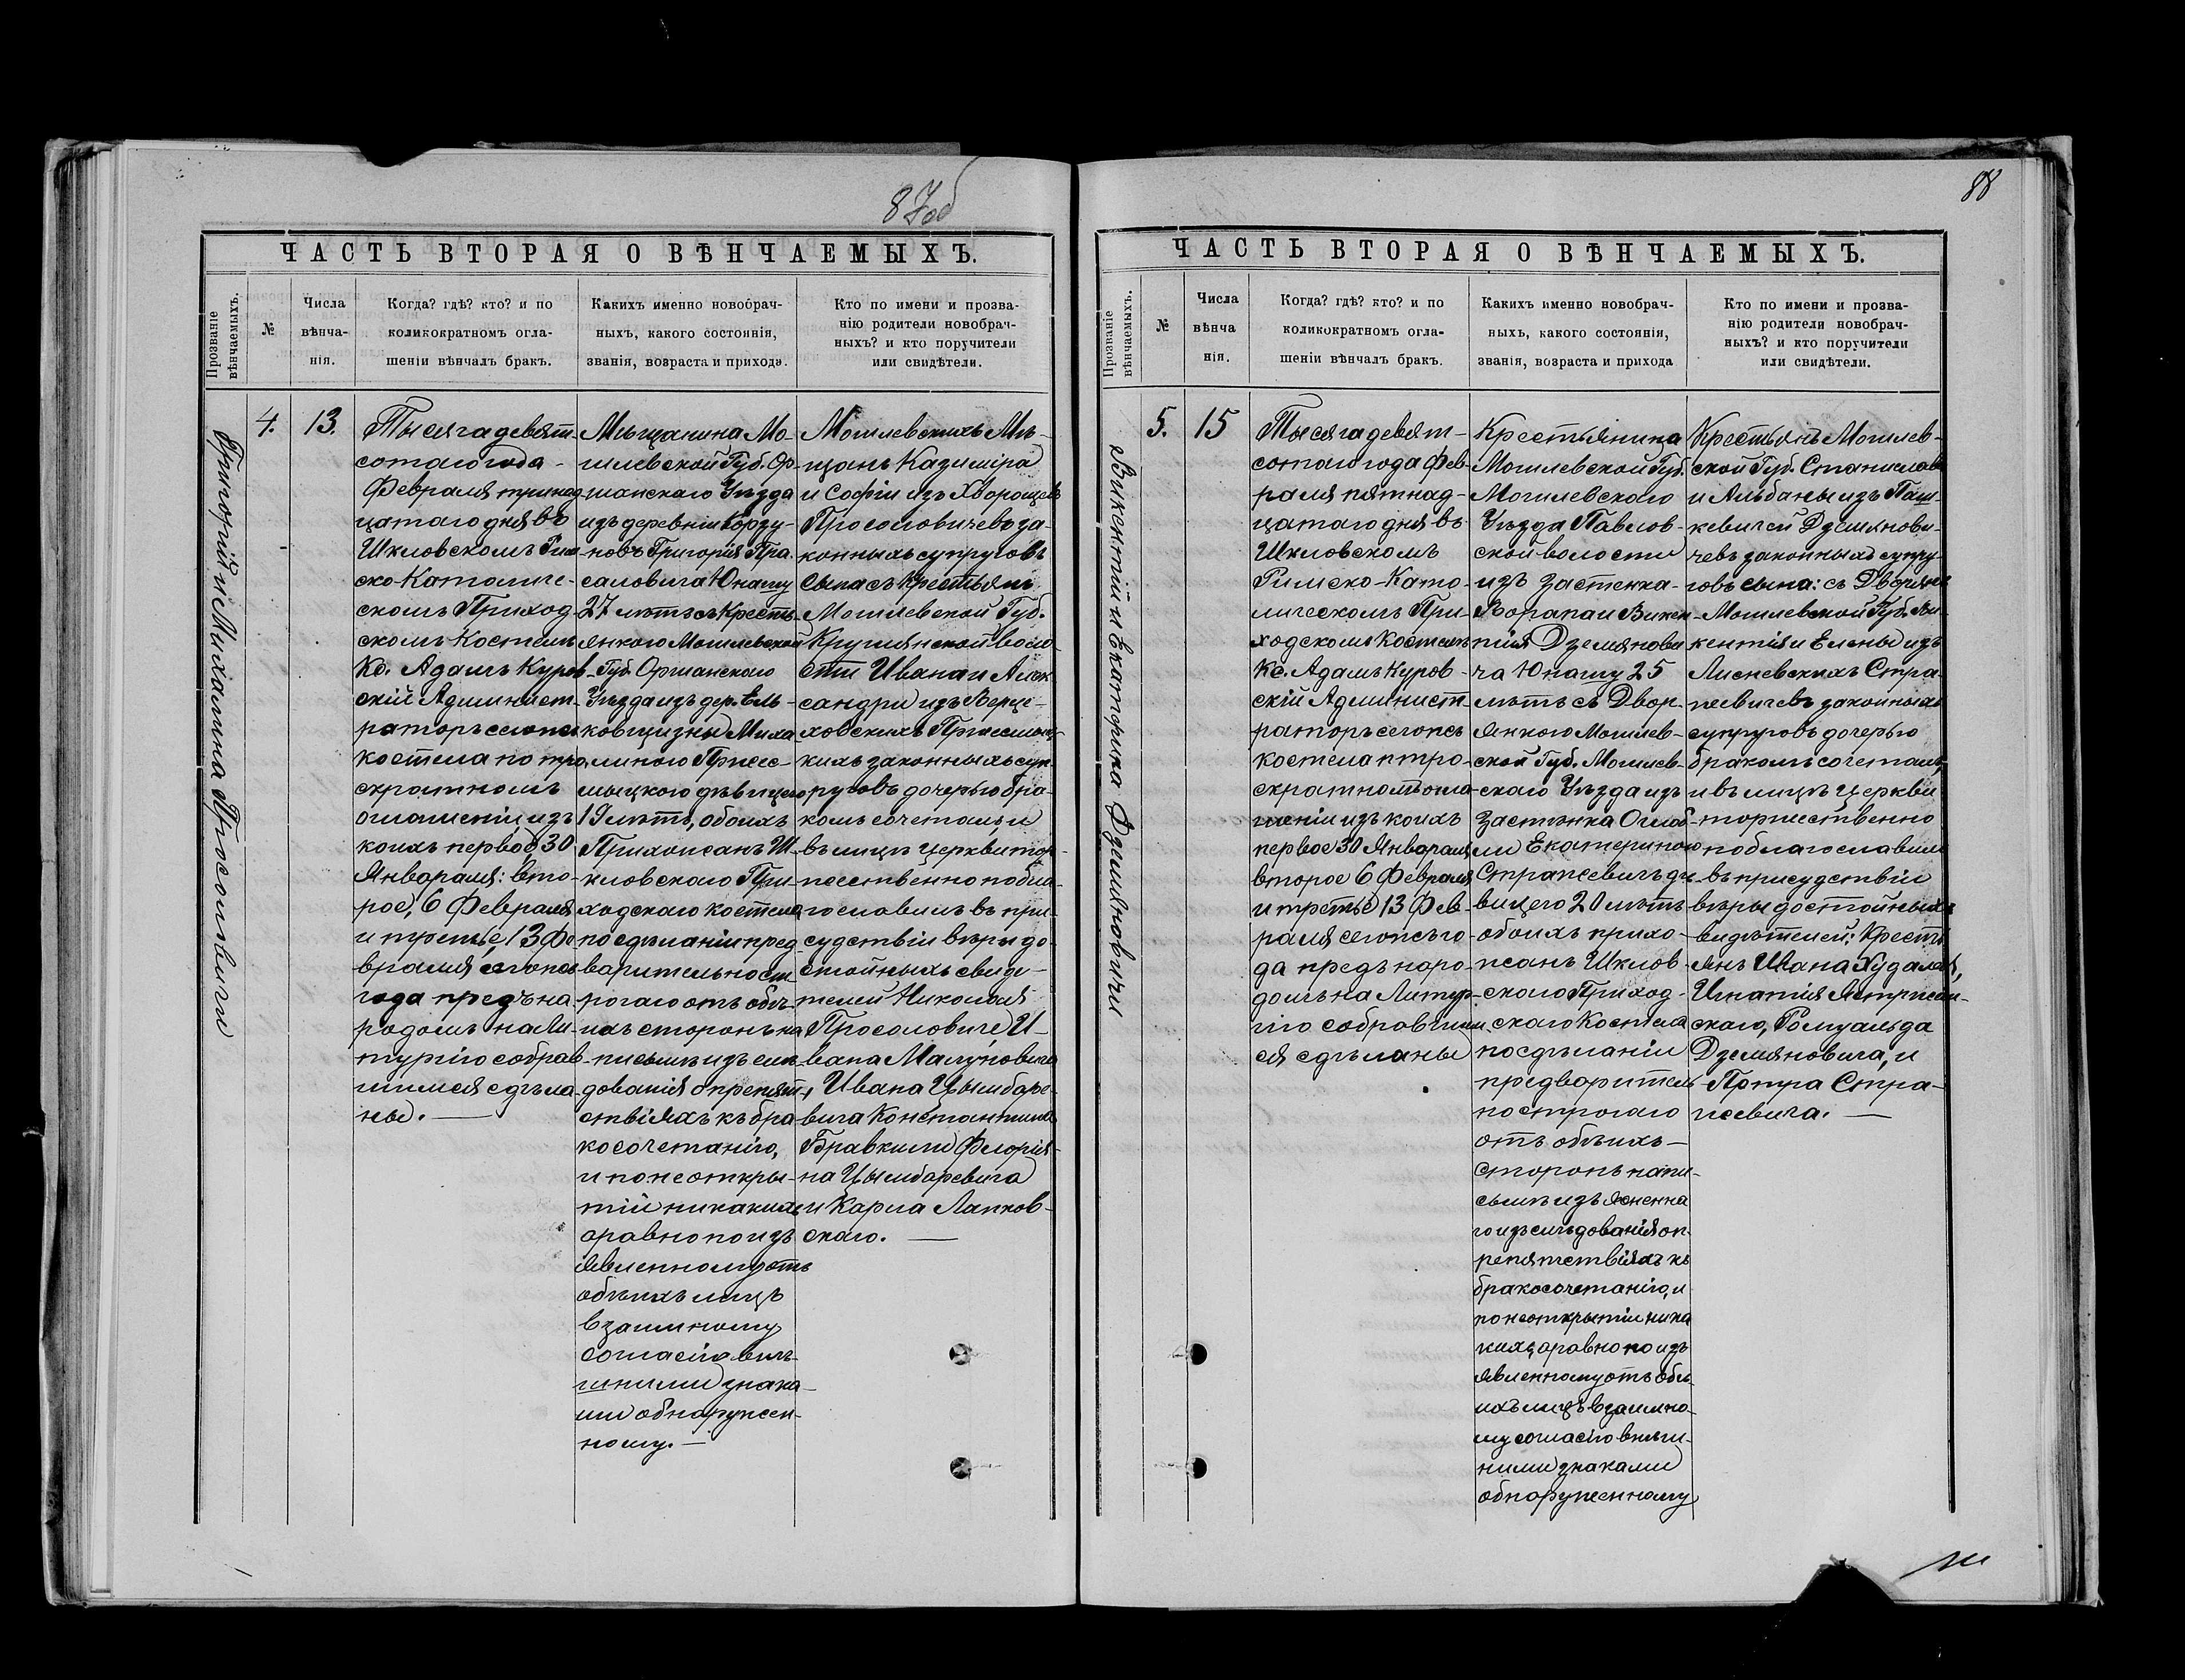 87об
ЧАСТЬ ВТОРАЯ О ВѢНЧАЕМЫХЪ.
Прозваніе
вѣнчаемыхъ.
№
Числа
вѣнча-
нія.
Когда? гдѣ? кто? и по
коликократномъ огла-
шеніи вѣнчалъ бракъ.
Какихъ именно новобрач-
ныхъ, какого состоянія,
званія, возраста и прихода.
Кто по имени и прозва-
нію родители новобрач-
ныхъ? и кто поручители
или свидѣтели.
Григорій и Михалина Просоловичи
4.
13.
Тысяча девят-
сотаго года -
Февраля тринад-
цатаго дня въ
Шкловскомъ Рим-
ско-Католиче-
скомъ Приход-
скомъ Костелѣ
Кс. Адамъ Куров-
скій Админист-
раторъ сегоже
костела по тро-
екратномъ
оглашеніи изъ
коихъ первое 30
Января: вто-
рое, 6 Февраля
и третье, 13 Фе
враля сегоже
года предъ на
родомъ на Ли-
тургію собрав-
шимся сдѣла
ны. —
Мѣщанина Мо-
гилевской Губ. Ор-
шанскаго Уѣзда
изъ деревни Корзу-
новъ Григорія Пра-
саловича Юношу
27 лѣтъ съ Кресть-
янкою Могилевской
Губ. Оршанскаго
Уѣзда изъ дер. Ель-
ковщизны Миха
линою Приес-
мыцкою дѣвицею
19 лѣтъ, обоихъ
Прихожанъ Ш-
кловскаго При-
ходскаго костела
по сдѣланіи пред
варительно ст
рогаго отъ обѣ-
ихъ сторонъ на
письмѣ изъ слѣ
дованія о препят-
ствіяхъ къ бра
косочетанію,
и по не откры-
тіи никакихъ
а равно по изъ
явленному отъ
обѣихъ лицъ
взаимному
согласію внѣ-
шними знака-
ми обнаружен-
ному. —
Могилевскихъ Мѣ-
щанъ Казиміра
и Софіи изъ Хворощевъ
Просоловичевъ за-
конныхъ супруговъ
сына съ Крестьянъ
Могилевской Губ.
Круглянской воло-
сти Ивана и Алек
сандри изъ Верце-
ховскихъ Приесмыц-
кихъ законныхъ суп
руговъ дочерью бра-
комъ сочеталъ, и
въ лицѣ церкви тор-
жественно побла-
гословилъ въ при-
судствіи вѣры до-
стойныхъ свиде-
телей Николая
Просоловича, И-
вана Малуновича
Ивана Цымбаре-
вича Константина
Бравкили Флорія-
на Цымбаревича
и Карла Лапков-
скаго. —
88
ЧАСТЬ ВТОРАЯ О ВѢНЧАЕМЫХЪ.
Прозваніе
вѣнчаемыхъ.
№
Числа
вѣнча
нія.
Когда? гдѣ? кто? и по
коликократномъ огла-
шеніи вѣнчалъ бракъ.
Какихъ именно новобрач-
ныхъ, какого состоянія,
званія, возраста и прихода
Кто по имени и прозва-
нію родители новобрач-
ныхъ? и кто поручители
или свидѣтели.
Викентій и Екатерина Дземяновичи
5.
15
Тысяча девят-
сотаго года Фев-
раля пятнад-
цатаго дня въ
Шкловскомъ
Римско-Като-
лическомъ При-
ходскомъ Костелѣ
Кс. Адамъ Куров-
скій Админист-
раторъ сегоже
костела п тро-
екратномъ огла-
шеніи изъ коихъ
первое 30 Января
второе 6 Февраля
и третье 13 Фев-
раля сегоже го-
да предъ наро-
домъ на Литур-
гію собравшим
ся сдѣланы
Крестьянина
Могилевской Губ.
Могилевскаго
Уѣзда Павлов-
ской волости
изъ застенка-
Ворапаи Викен
тія Дземянови
ча Юношу 25
лѣтъ съ Двор-
янкою Могилев-
ской Губ. Могилев-
скаго Уѣзда изъ
застѣнка Оглоб-
ли Екатериною
Стражевичъ дѣ-
вицею 20 лѣтъ
обоихъ прихо-
жанъ Шклов-
скаго Приход-
скаго Костела
по сдѣланіи
предворитель
но строгаго
отъ обѣихъ-
сторонъ напи-
сьмѣ изъясненна
го изъ слѣдованія о п-
репятствіяхъ къ
бракосочетанію, и
по не открытіи ника
кихъ, а равно по изъ
явленному отъ обѣ-
ихъ лицъ взаимно-
му согласію внѣш-
ними знаками
обнаруженному
Крестьянъ Могилев-
ской Губ. Станислава
и Альбаны изъ Паш-
кевичей Дземянови-
чевъ законныхъ супру-
говъ сына: съ Дворянъ
Могилевской Губ. Ви-
кентія и Елены изъ
Лисневскихъ Стра-
жевичевъ законныхъ
супруговъ дочерью
бракомъ сочеталъ,
и въ лицѣ церкви
торжественно
поблагославилъ
въ присудствіи
вѣры достойныхъ
видѣтелей: Кресть
янъ Ивана Худала,
Игнатія Ястржем-
скаго, Ромуальда
Дземяновича, и
Петра Стра-
жевича. —